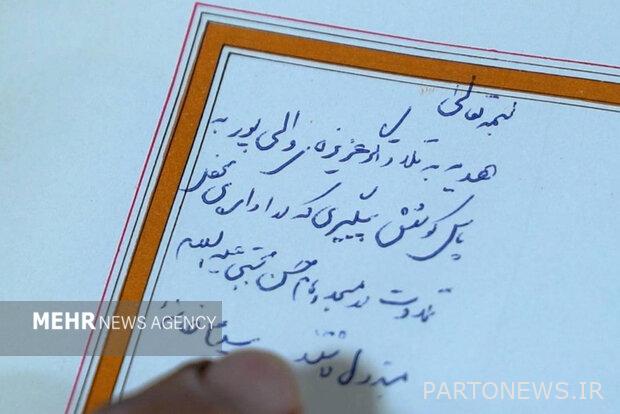 بسمه تعالی
هدیه به برادر عزیزم والی پور به
پاس کوشش پیگیری که در اداره ی محفل
تلاوت در مسجد امام حسن مجتبی علیه السلام
مبذول داشتند
MEHR NEWS AGENCY
PARTONEWS.IR